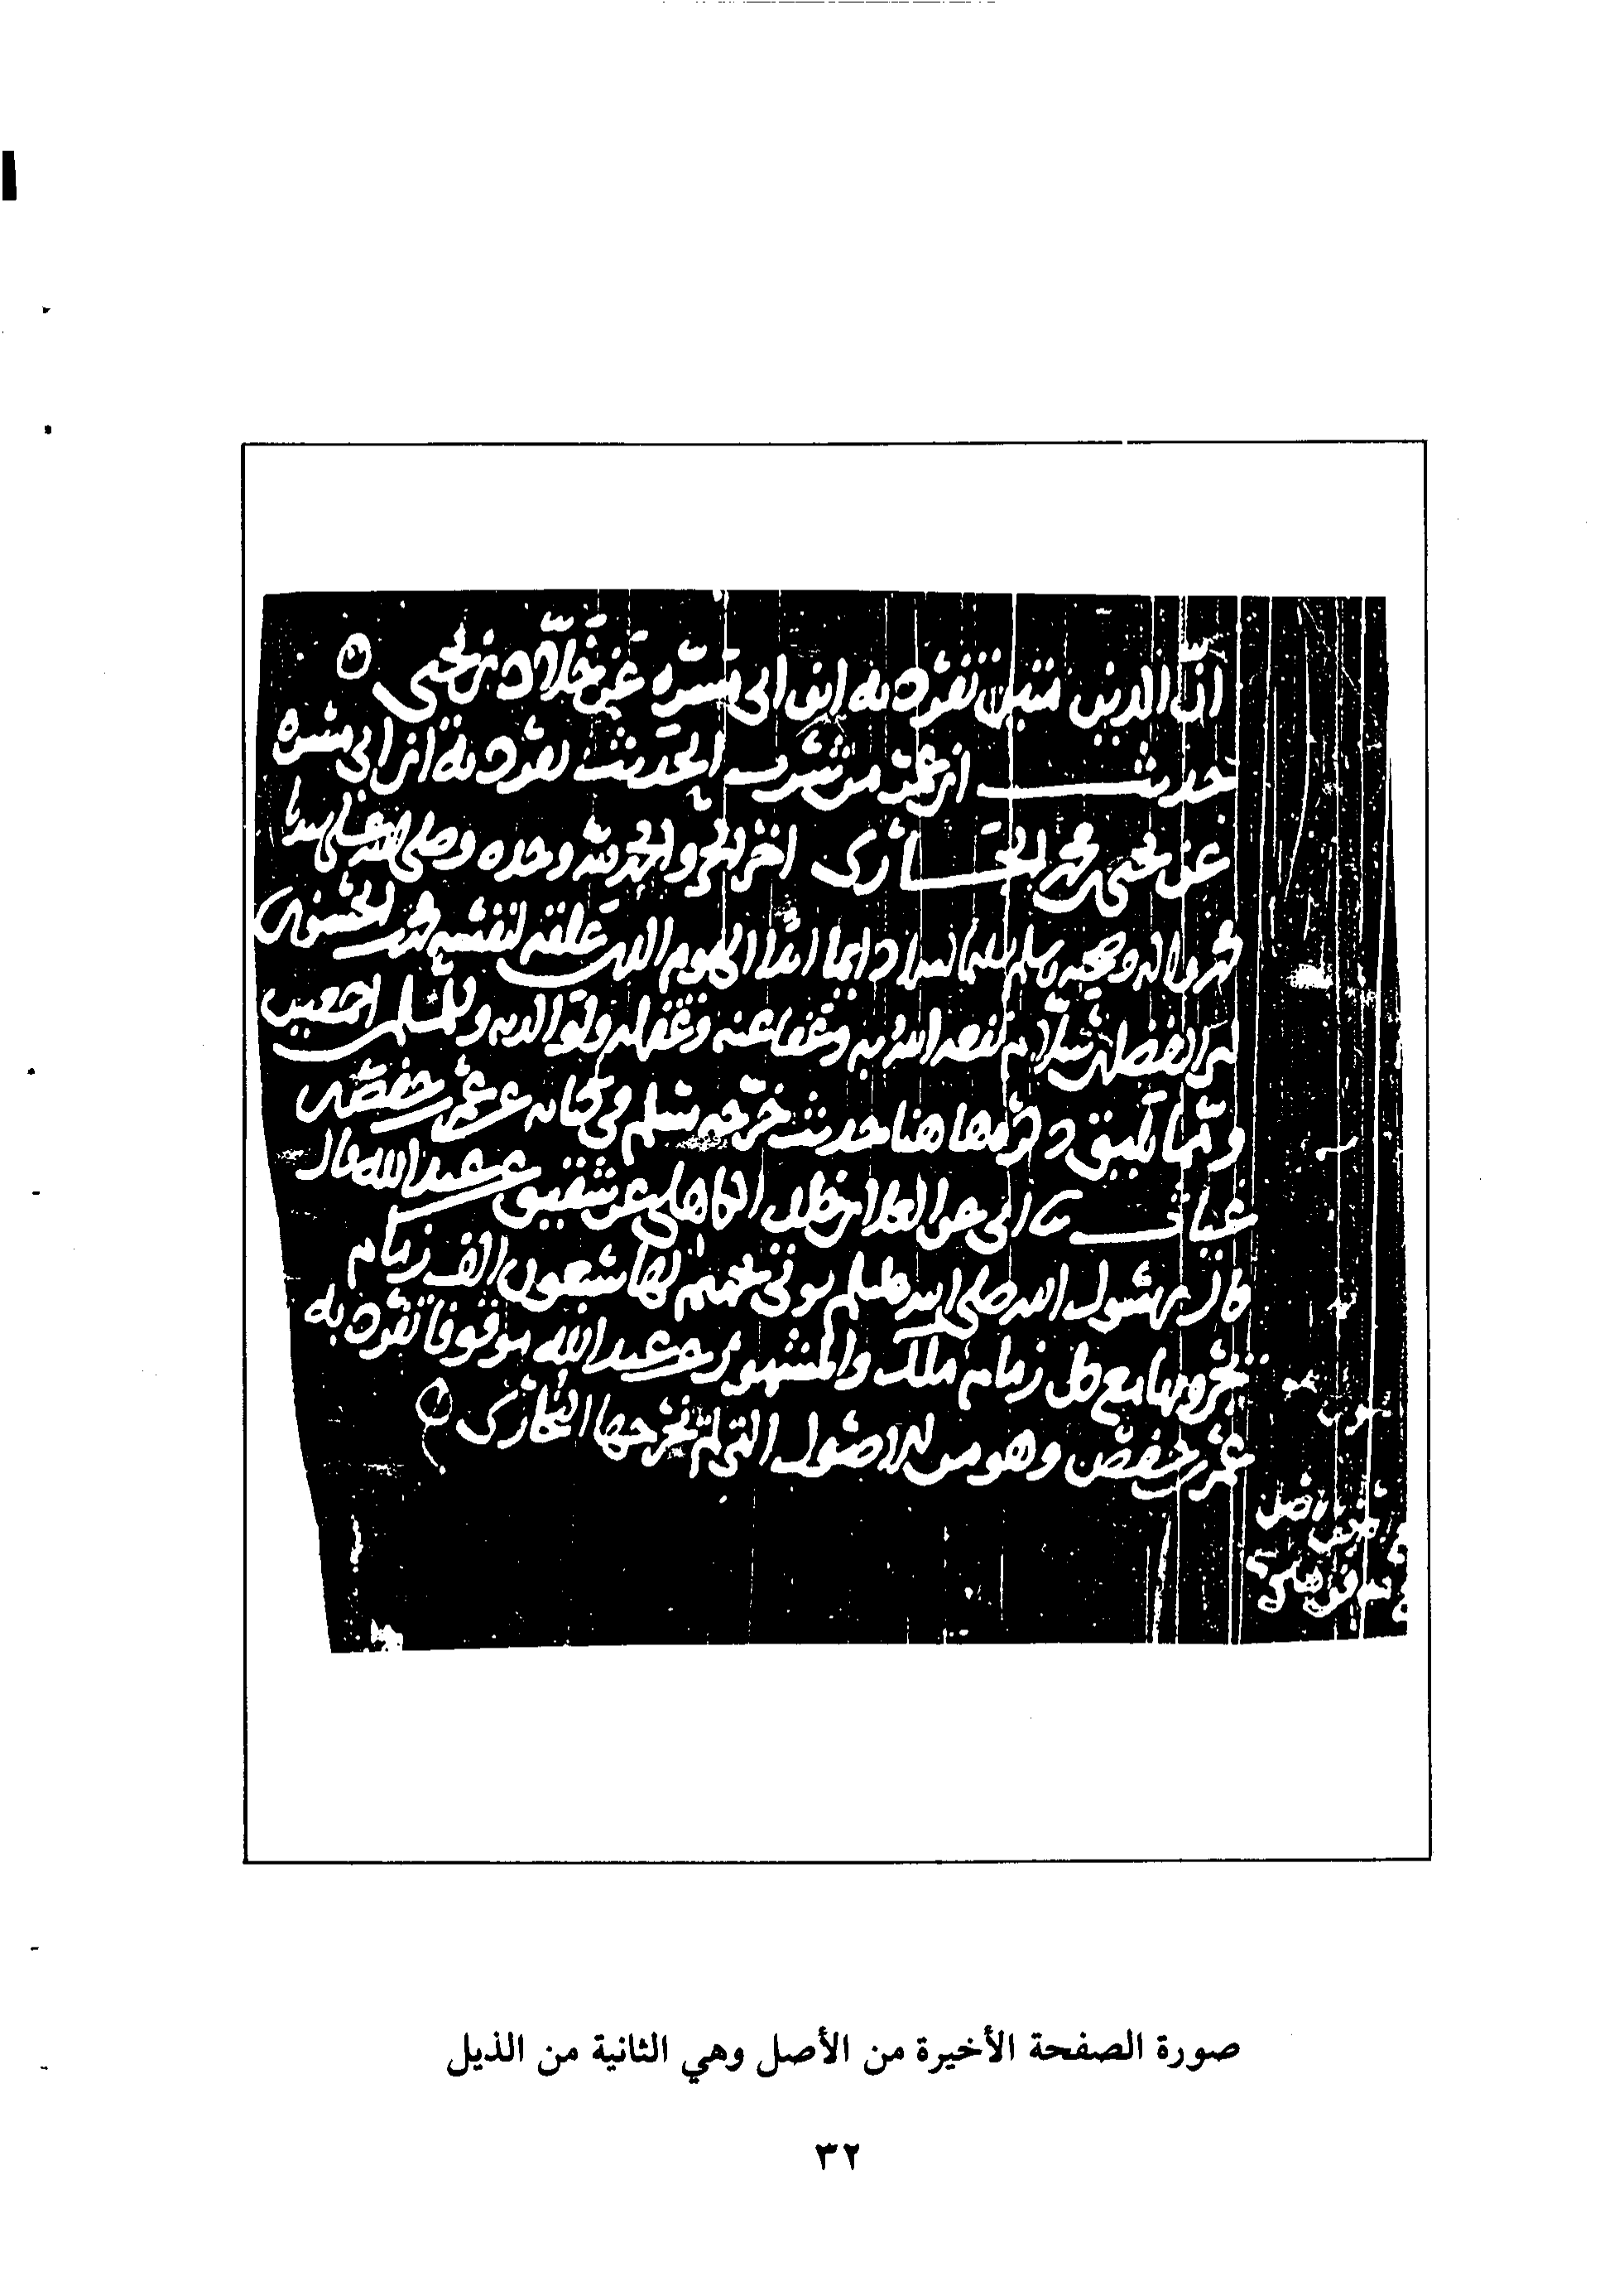 ان الدين متين تفرد به ابن ابي مسره عن خلاد بن يحيى
حديث ابن عمر من شرب الحديث تفرد به ابن ابي مسره
عن يحيى بن محمد الجاري اخر الجزء والحمد لله وحده وصلى الله على سيدنا
محمد واله وصحبه وسلم تسليما دايما ابدا الى يوم الدين علقه لنفسه محمد الحسن بن
ابي الفضل بن سلام نفعه الله به وعفا عنه وغفر له ولوالديه وللمسلمين اجمعين
ومما يليق ذكره هاهنا حديث خرجه مسلم في كتابه عن عمر بن حفص بن
غياث ثنا ابي عن العلا بن خالد الكاهلي عن شقيق عن عبد الله قال
قال رسول الله صلى الله عليه وسلم يوتى بجهنم لها سبعون الف زمام
يجرونها مع كل زمام ملك والمشهور عن عبد الله موقوفا تفرد به
عمر بن حفص وهو من الاصول التي لم يخرجها البخاري
صورة الصفحة الأخيرة من الأصل وهي الثانية من الذيل
٣٢